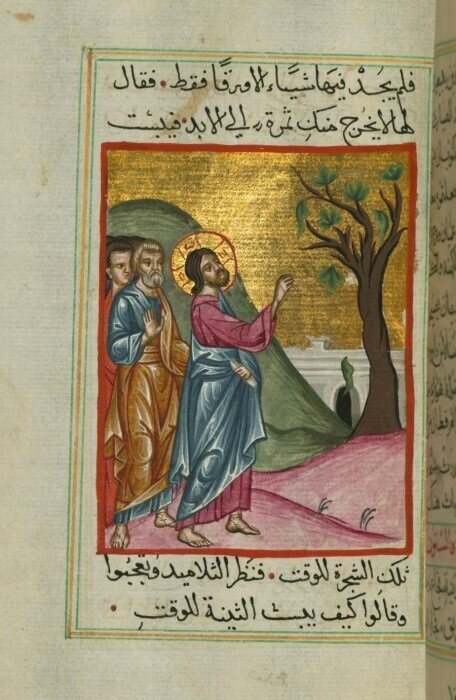 فلم يجد فيها شيئاء الا ورقًا فقط • فقال
لها لا يخرج منكِ ثمرة الي الابد • فيبست
تلك الشجرة للوقت • فنظر التلاميد وتعجبوا
وقالوا كيف يبست التينة للوقت •